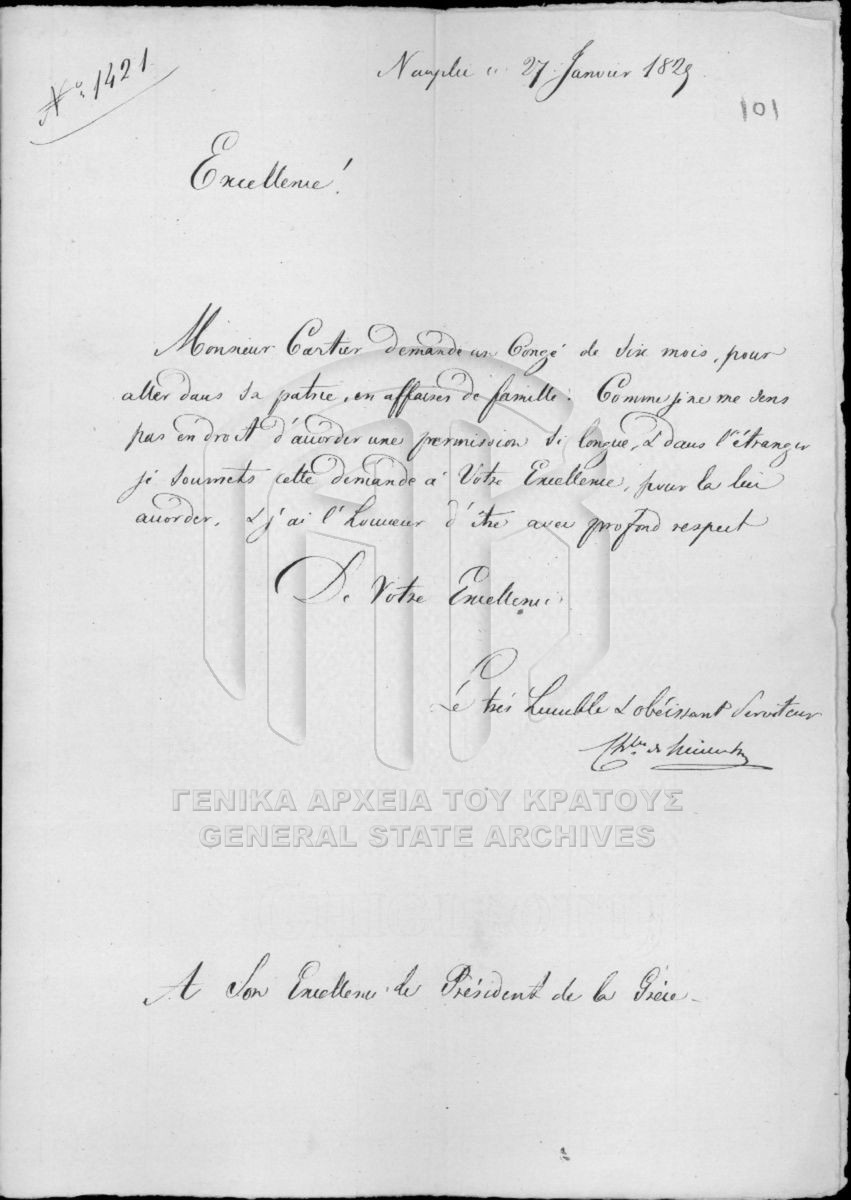 Nº 1421
Nauplie ce 27 Janvier 1829
101
Excellence!
Monsieur Cartier demande un Congé de six mois, pour
aller dans sa patrie, en affaires de famille. Comme je ne me sens
pas en droit d'accorder une permission si longue, & dans l'étranger
je soumets cette demande à Votre Excellence, pour la lui
accorder, & j'ai l'honneur d'être avec profond respect
De Votre Excellence
Le très humble & obéissant Serviteur
de
ΓΕΝΙΚΑ ΑΡΧΕΙΑ ΤΟΥ ΚΡΑΤΟΥΣ
GENERAL STATE ARCHIVES
A Son Excellence le Président de la Grèce